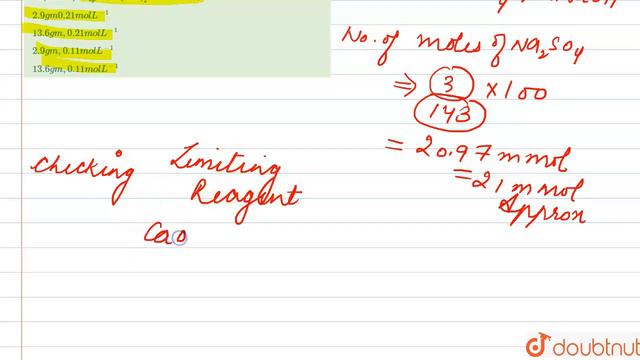 2.9gm0.21molL⁻¹
13.6gm, 0.21molL⁻¹
2.9gm, 0.11molL⁻¹
13.6gm, 0.11molL⁻¹
No. of moles of Na2SO4
⇒ 3/143 × 100
= 20.97 m mol
= 21 m mol
Approx
Checking Limiting
Reagent
CaO
doubtnut